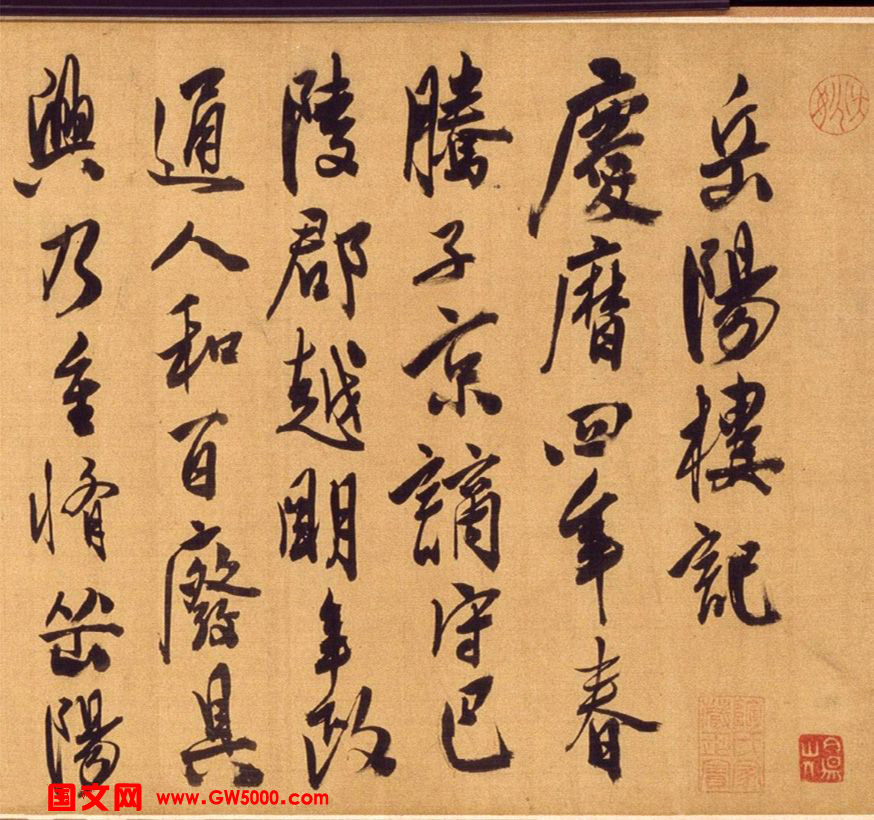 岳陽樓記
慶曆四年春
騰子京謫守巴
陵郡越明年政
通人和百廢具
興乃重脩岳陽
国文网 www.GW5000.com